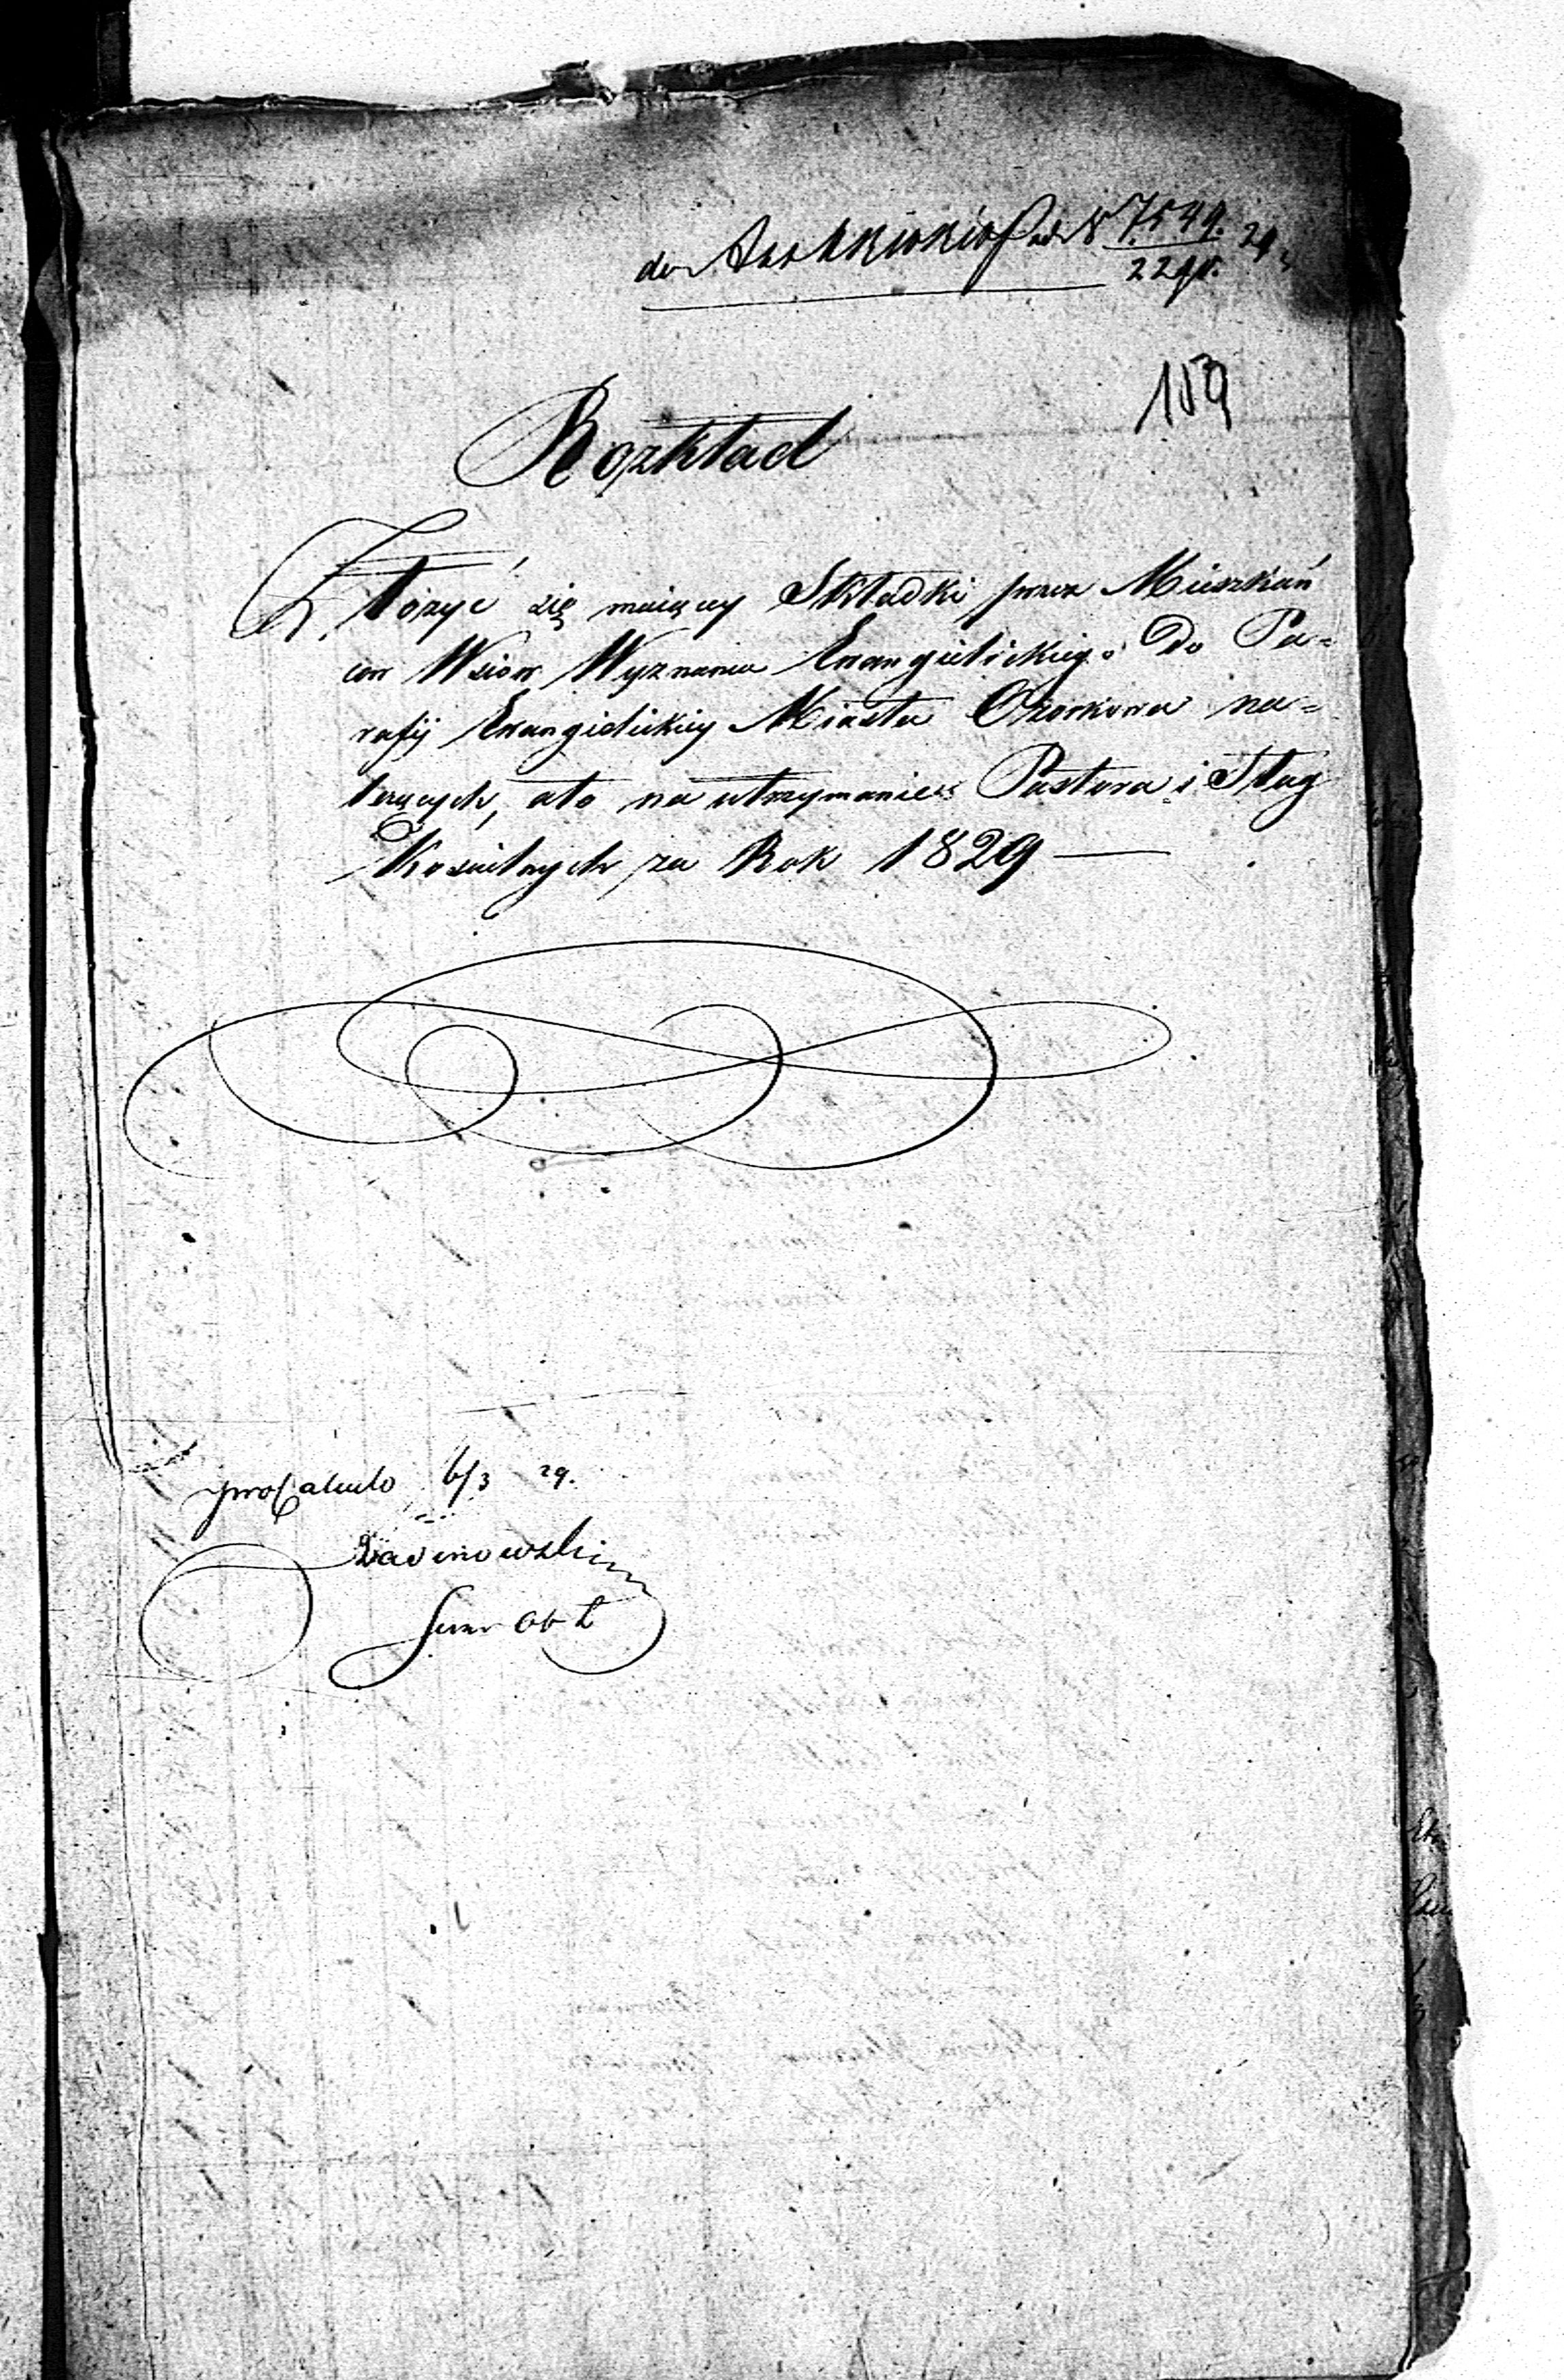 do
7549.
22gr.
159
Rozkład
Złozyć się maiącey Składki przez Mieszkań
ców Wsiow Wyznania Ewangielickiego Do Pa=
rafij Ewangielickiey Miasta Ozorkowa na=
lezących, ato na utrzymanie Pastora i Sług
Koscielnych za Rok 1829 —
pro Calculo 6/3 29.